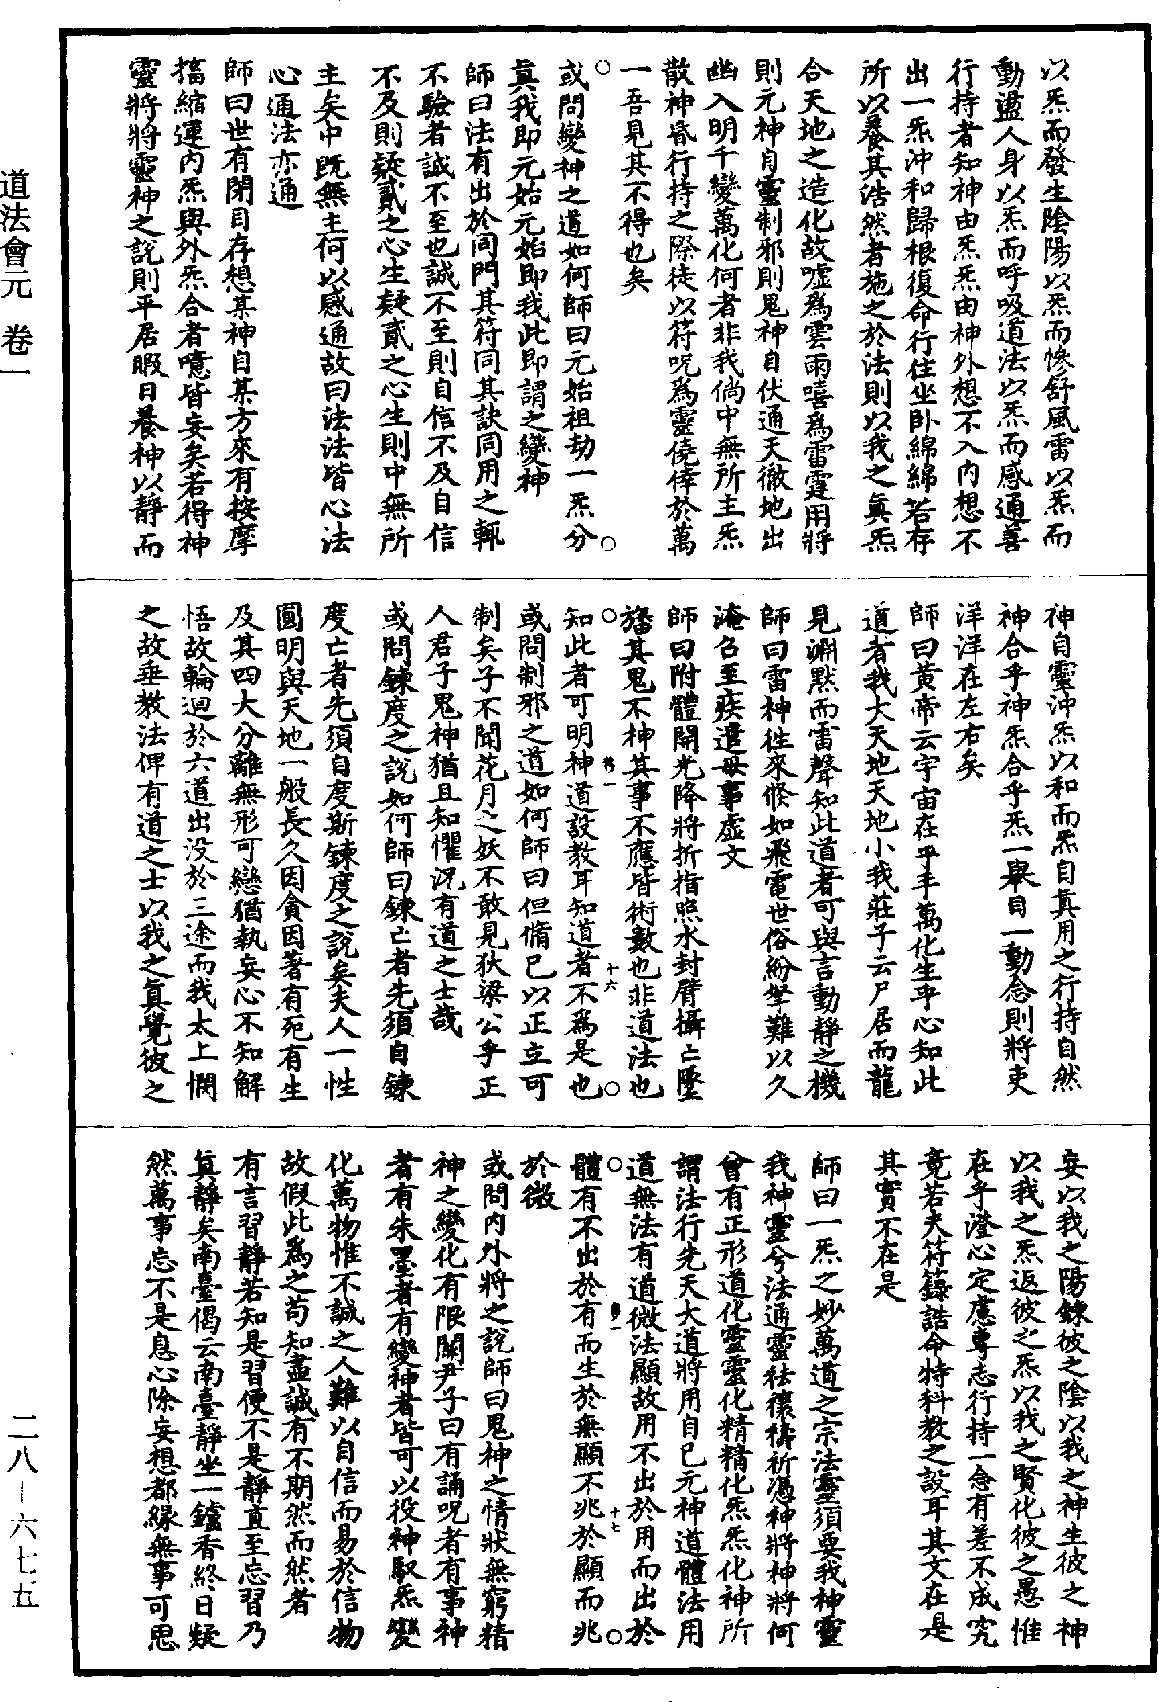 道法會元 卷一
以炁而發生陰陽以炁而慘舒風雷以炁而
動盪人身以炁而呼吸道法以炁而感通善
行持者知神由炁炁由神外想不入內想不
出一炁沖和歸根復命行住坐卧綿綿若存
所以養其浩然者施之於法則以我之真炁
合天地之造化故噓為雲雨嘻為雷霆用將
則元神自靈制邪則鬼神自伏通天徹地出
幽入明千變萬化何者非我倘中無所主炁
散神昏行持之際徒以符呪為靈僥倖於萬
一吾見其不得也矣
或問變神之道如何師曰元始祖劫一炁分
真我即元始元始即我此即謂之變神
師曰法有出於同門其符同其訣同用之輒
不驗者誠不至也誠不至則自信不及自信
不及則疑貳之心生疑貳之心生則中無所
主矣中既無主何以感通故曰法法皆心法
心通法亦通
師曰世有閉目存想某神自某方來有按摩
搐縮運內炁與外炁合者噫皆妄矣若得神
靈將將靈神之說則平居暇日養神以靜而
神自靈沖炁以和而炁自真用之行持自然
神合乎神炁合乎炁一舉目一動念則將吏
洋洋在左右矣
師曰黃帝云宇宙在乎手萬化生乎心知此
道者我大天地天地小我莊子云尸居而龍
見淵默而雷聲知此道者可與言動靜之機
師曰雷神往來倏如飛電世俗紛拏難以久
淹召至疾遣毋事虛文
師曰附體開光降將折指照水封臂攝亡墜
旛其鬼不神其事不應皆術數也非道法也
知此者可明神道設教耳知道者不為是也
或問制邪之道如何師曰但脩己以正立可
制矣子不聞花月之妖不敢見狄梁公乎正
人君子鬼神猶且知懼況有道之士哉
或問鍊度之說如何師曰鍊亡者先須自鍊
度亡者先須自度斯鍊度之說矣夫人一性
圓明與天地一般長久因貪因著有死有生
及其四大分離無形可戀猶執妄心不知解
悟故輪迴於六道出没於三途而我太上憫
之故垂教法俾有道之士以我之真覺彼之
妄以我之陽鍊彼之陰以我之神生彼之神
以我之炁返彼之炁以我之賢化彼之愚惟
在乎澄心定慮專志行持一念有差不成究
竟若夫符籙誥命特科教之設耳其文在是
其實不在是
師曰一炁之妙萬道之宗法靈須要我神靈
我神靈兮法通靈祛禳禱祈憑神將神將何
曾有正形道化靈靈化精精化炁炁化神所
謂法行先天大道將用自己元神道體法用
道無法有道微法顯故用不出於用而出於
體有不出於有而生於無顯不兆於顯而兆
於微
或問內外將之說師曰鬼神之情狀無窮精
神之變化有限關尹子曰有誦呪者有事神
者有朱墨者有變神者皆可以役神馭炁變
化萬物惟不誠之人難以自信而易於信物
故假此為之苟知盡誠有不期然而然者
有言習靜若知是習便不是靜直至忘習乃
真靜矣南臺偈云南臺靜坐一鑪香終日凝
然萬事忘不是息心除妄想都緣無事可思
十六
十七
二八－六七五